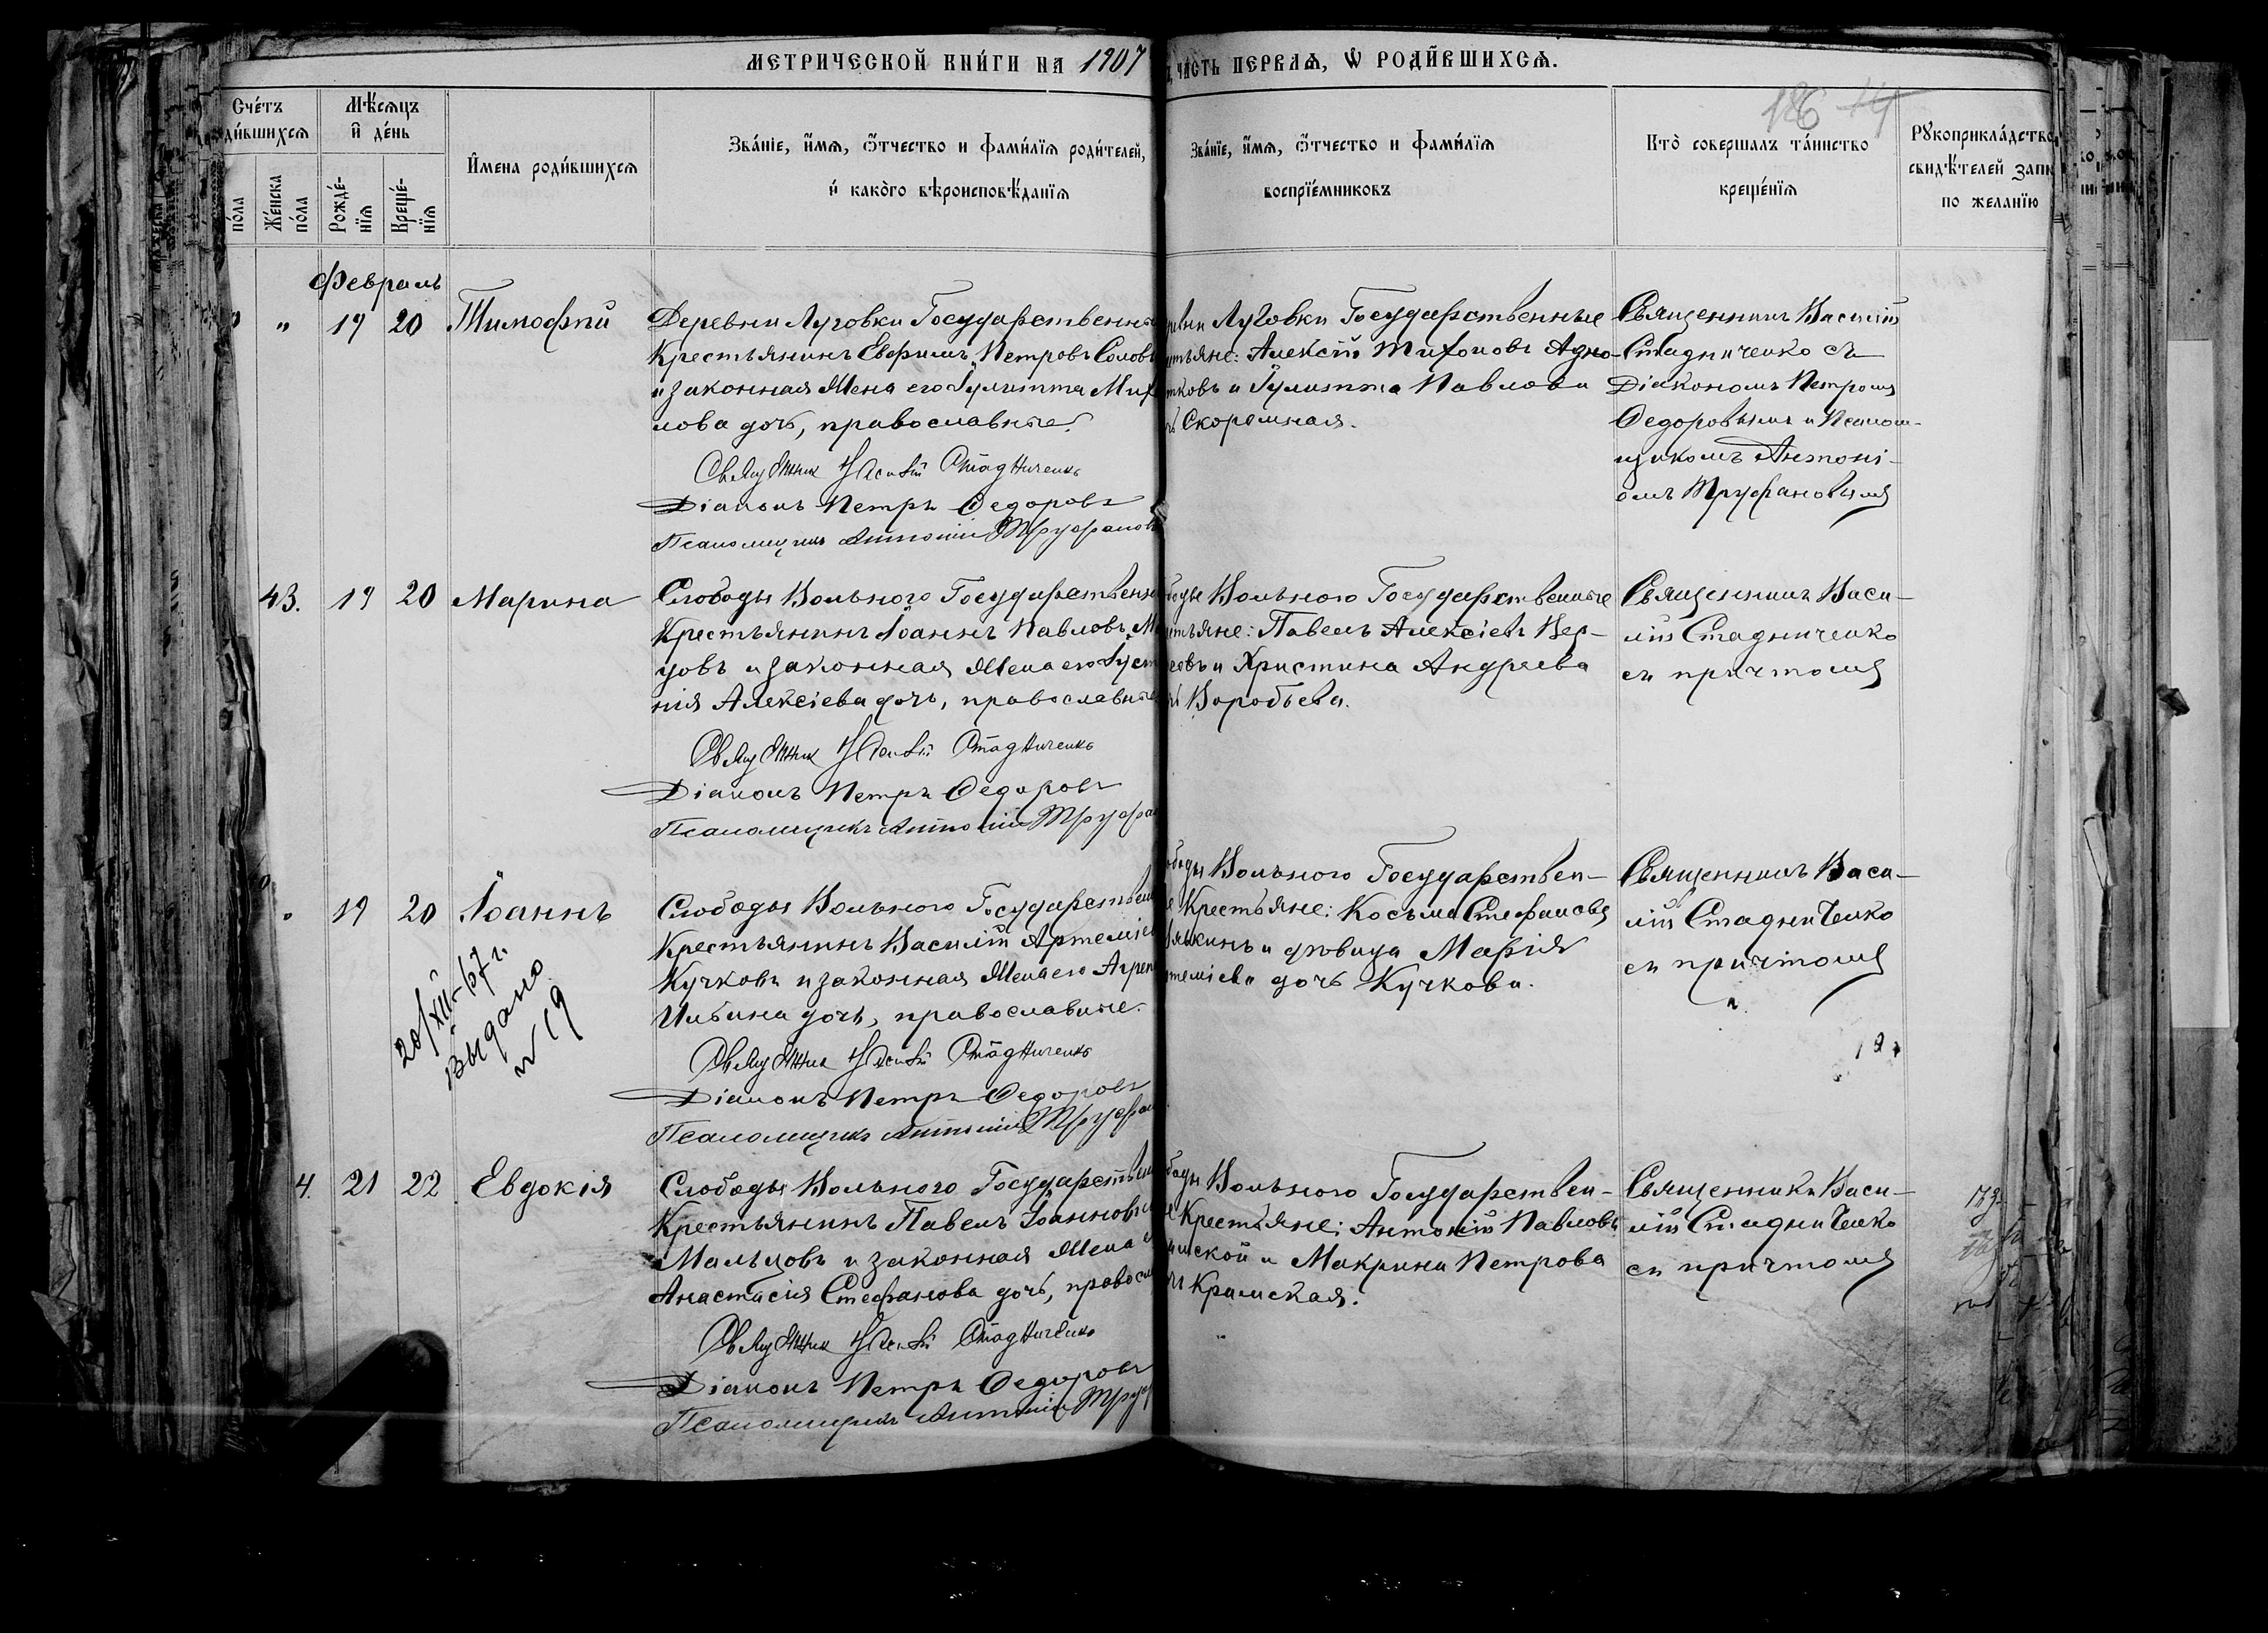 МЕТРИЧЕСКОЙ КНИГИ НА 1907
ЧАСТЬ ПЕРВАЯ, Ѡ РОДИВШИХСЯ.
186
Счетъ
Мѣсяцъ
и день
Имена родившихся
Званіе, имя, отчество и фамилія родителей,
и какого вѣроисповѣданія
Званіе, имя, отчество и фамилія
воспріемниковъ
Кто совершалъ таинство
крещенія
Рукоприкладство
свидѣтелей
по желанію
пола
Женска пола
Рожде-
нія
Креще-
нія
Февраль
" 19 20 Тимофей
Деревни Луговки Государственный
Крестьянинъ Евфимъ Петровъ
и законная жена его Іулитта
лова дочь, православные.
Священник Василій Стадниченко
Діаконъ Петръ Ѳедоровъ
Псаломщикъ Антоній Труфановъ
Луговки Государственные
Алексій Тихоновъ
и Іулитта Павлова
Скоромная.
Священникъ Василій
Стадниченко съ
Діакономъ Петромъ
Ѳедоровымъ и Псалом-
щикомъ Антоні-
емъ Труфановымъ
43. 19 20 Марина
Слободы Вольного
Крестьянинъ Іоаннъ Павловъ
и законная жена его
нія Алексіева дочь, православные
Священник Василій Стадниченко
Діаконъ Петръ Ѳедоровъ
Псаломщикъ Антоній
Вольного Государственные
Павелъ Алексіевъ
и Христина Андреева
Воробьева.
Священникъ Васи-
лій Стадниченко
съ причтомъ
19 20 Іоаннъ
20/XII-67 г.
Выдано
N 19
Слободы Вольного
Крестьянинъ Василій
Кучковъ и законная жена его
дочь, православные.
Священник Василій Стадниченко
Діаконъ Петръ Ѳедоровъ
Псаломщикъ Антоній
Вольного Государствен-
Крестьяне: Косьма Стефановъ
и дѣвица Марія
дочь Кучкова.
Священникъ Васи-
лій Стадниченко
съ причтомъ
4. 21 22 Евдокія
Слободы Вольного
Крестьянинъ Павелъ Іоанновъ
Мальцовъ и законная жена
Анастасія Стефанова дочь,
Священник Василій Стадниченко
Діаконъ Петръ Ѳедоровъ
Псаломщикъ Антоній
Вольного Государствен-
Крестьяне: Антоній Павловъ
и Макрина Петрова
Крамская.
Священникъ Васи-
лій Стадниченко
съ причтомъ